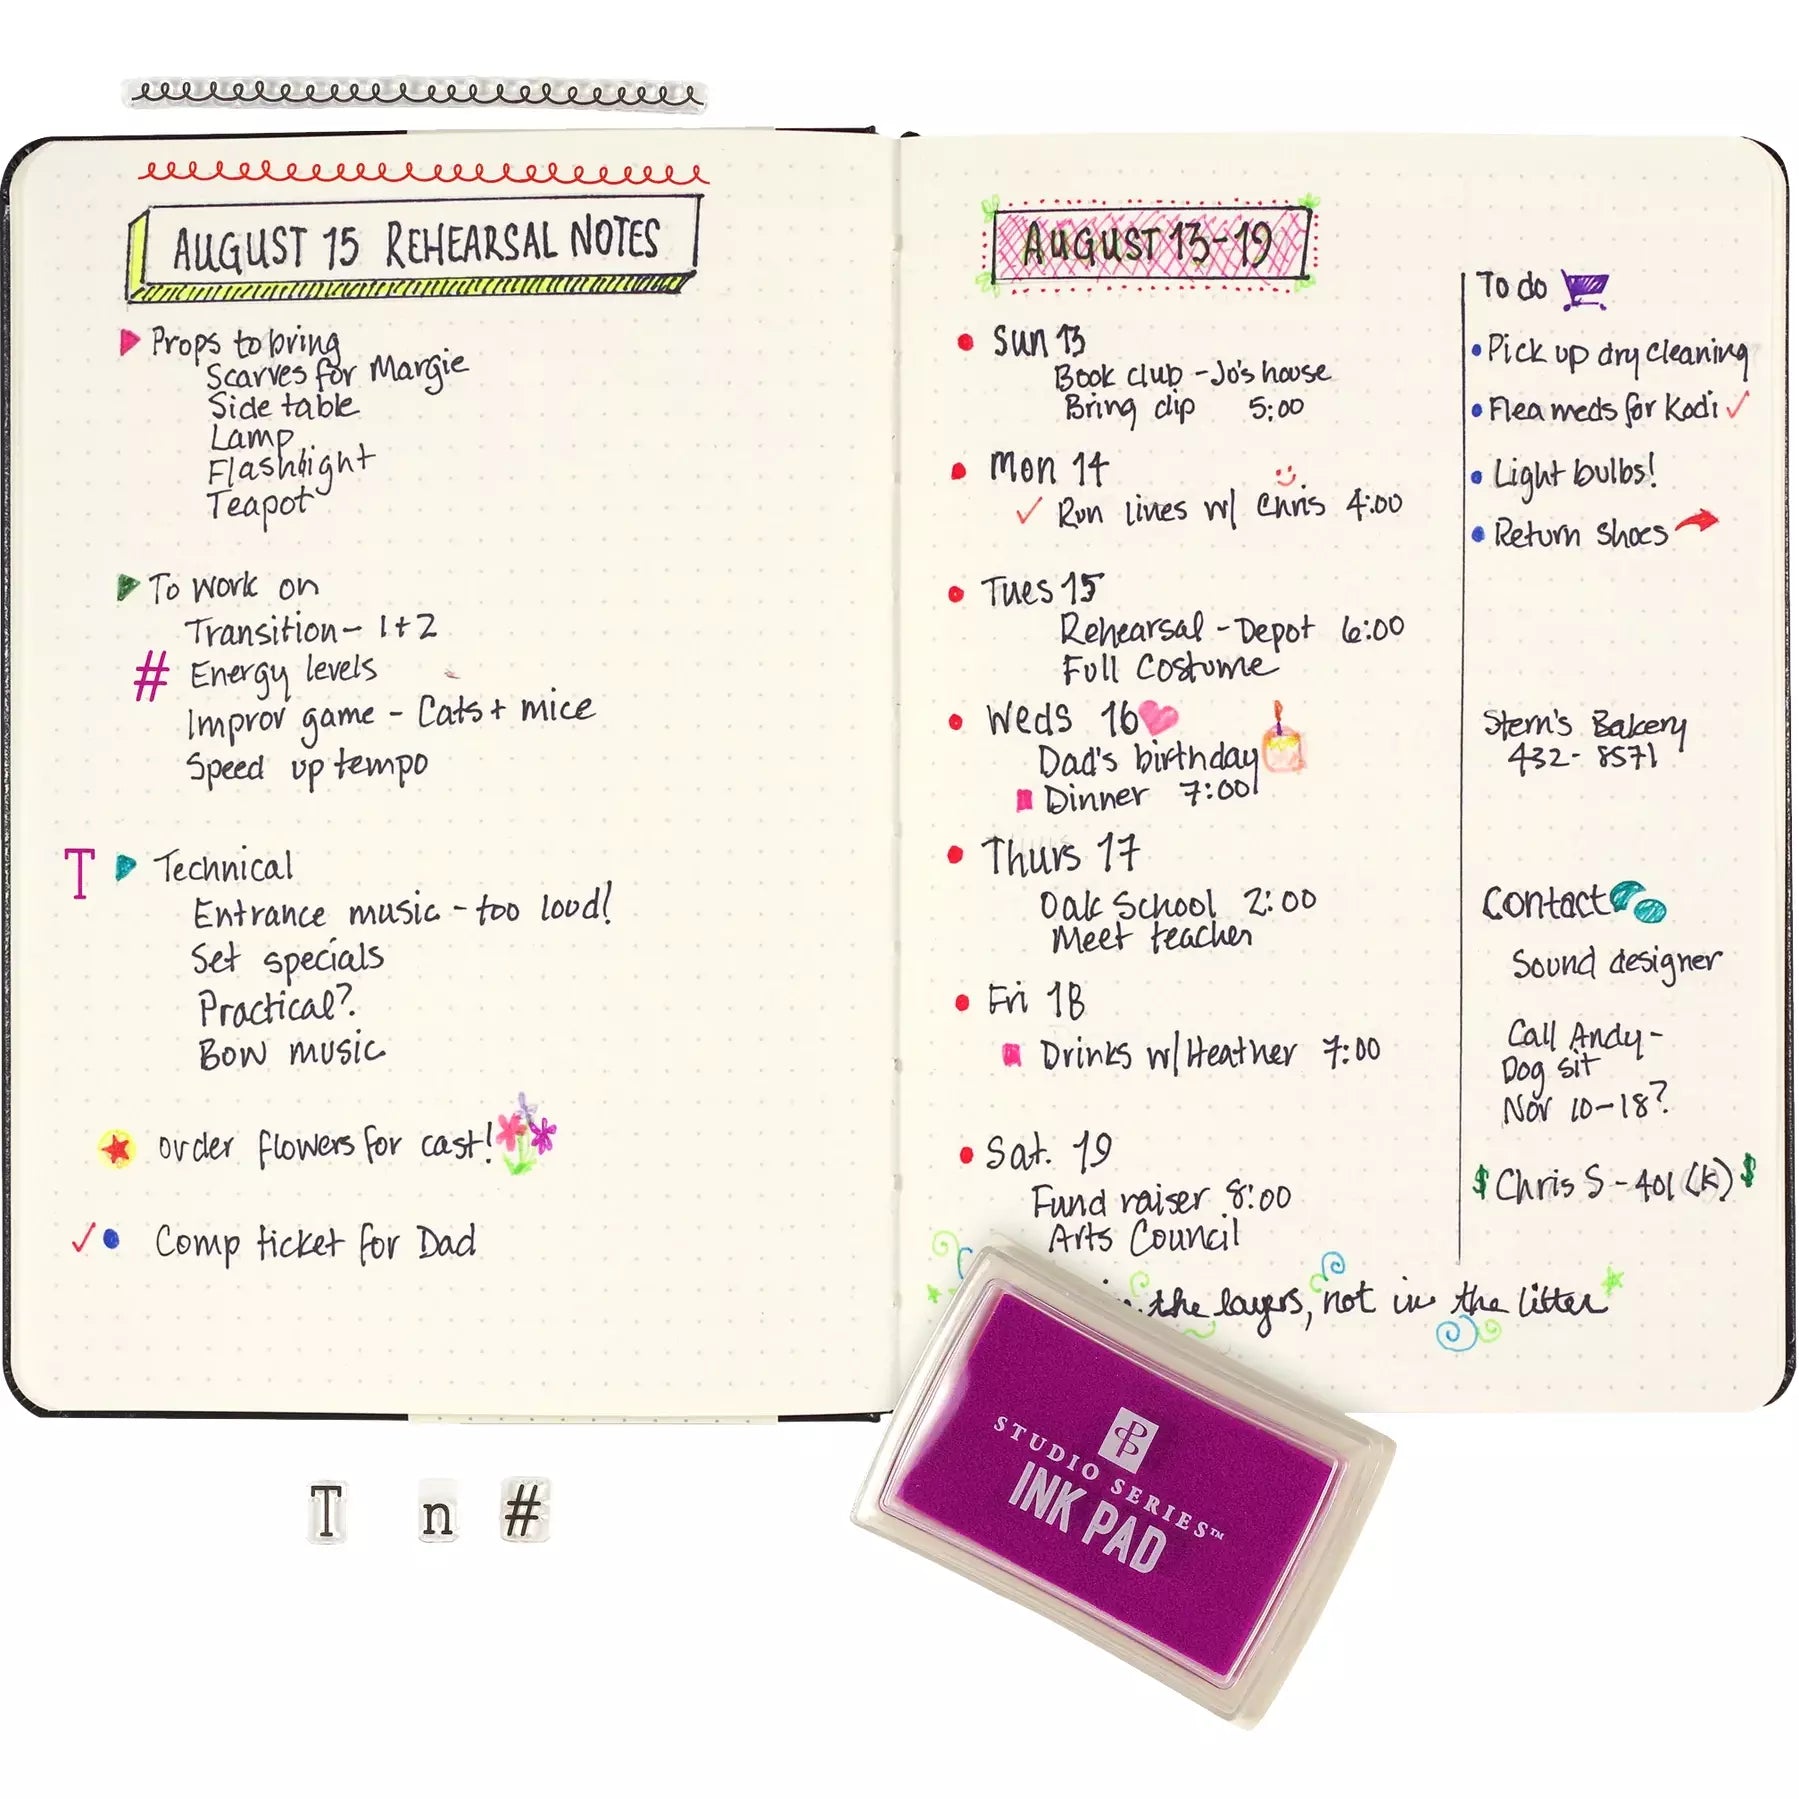 AUGUST 15 REHEARSAL NOTES
Props to bring
Scarves for Margie
Side table
Lamp
Flashlight
Teapot
To work on
Transition - 1+2
# Energy levels
Improv game - Cats + mice
Speed up tempo
T Technical
Entrance music - too loud!
Set specials
Practical?
Bow music
order flowers for cast!
Comp ticket for Dad
AUGUST 13-19
Sun 13
Book club - Jo's house
Bring dip 5:00
Mon 14
Run lines w/ Chris 4:00
Tues 15
Rehearsal - Depot 6:00
Full Costume
Weds 16
Dad's birthday
Dinner 7:00
Thurs 17
Oak School 2:00
Meet teacher
Fri 18
Drinks w/ Heather 7:00
Sat. 19
Fund raiser 8:00
Arts Council
the layers, not in the litter
To do
Pick up dry cleaning
Flea meds for Kodi
Light bulbs!
Return shoes
Stern's Bakery
432-8571
Contact
Sound designer
Call Andy -
Dog sit
Nov 10-18?
$ Chris S - 401 (K) $
STUDIO SERIES™
INK PAD
T n #